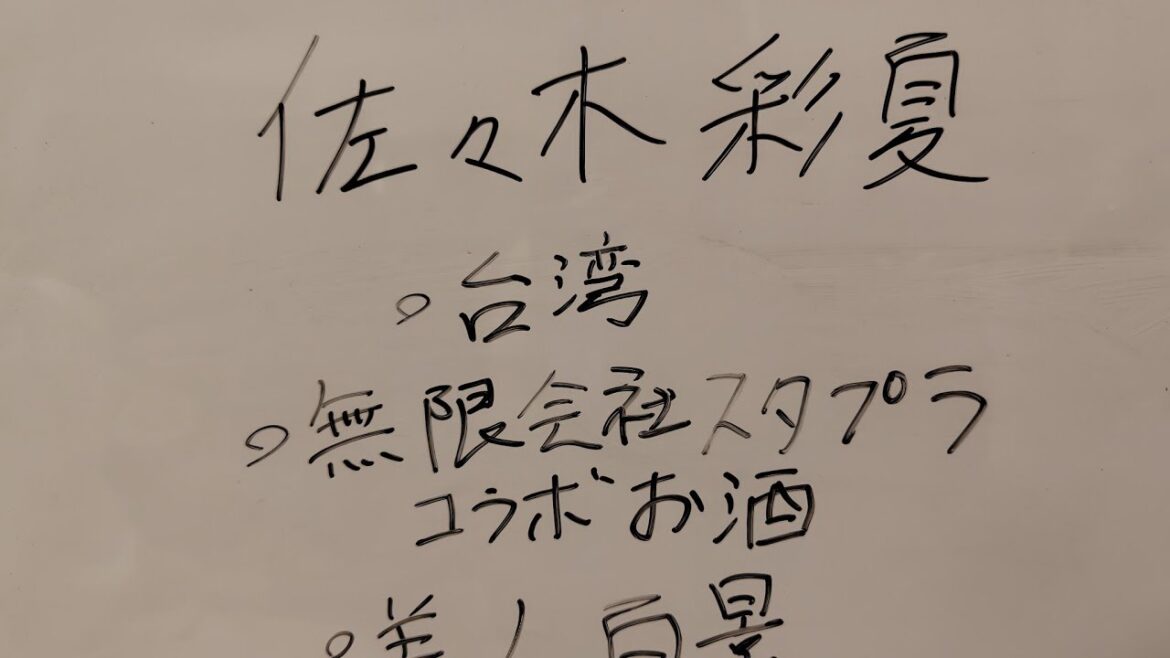 佐々木 彩夏
。台湾
。無限会社スタプラ
コラボお酒
。美ノ百景